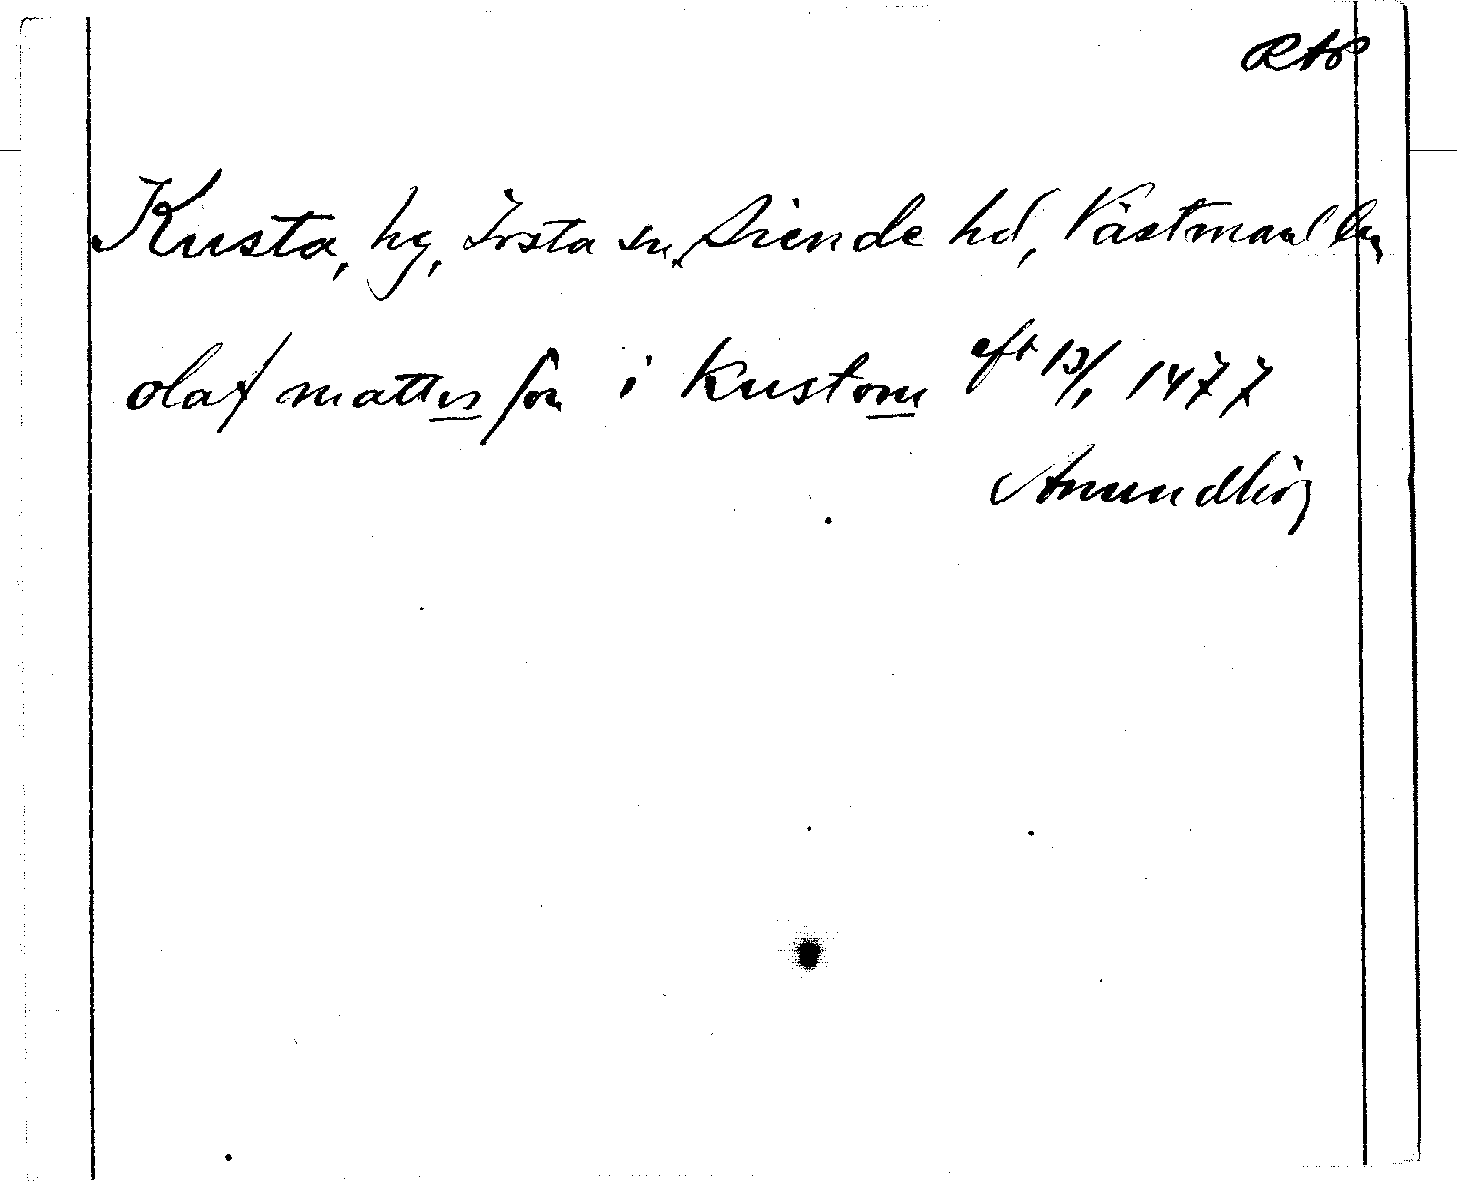 RAP
Kusta, hg, Irsta sn, Siende hd, Västmanl län
olaf mattes son i Kustom eft 13/1 1477
Amundhög